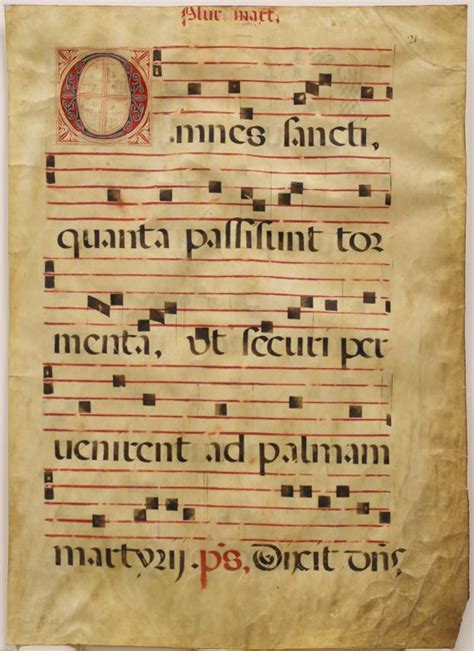 Plur mart,
21
Omnes sancti,
quanta passi sunt tor
menta, Vt securi per
uenirent ad palmam
martyrij. ps, Dixit dn̄s